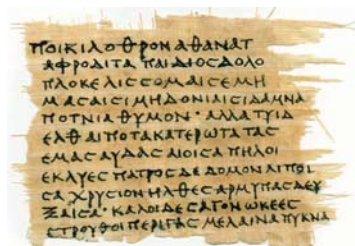 ΠΟΙΚΙΛΟΘΡΟΝΑΘΑΝΑΤ
ΑΦΡΟΔΙΤΑΠΑΙΔΙΟΣΔΟΛΟ
ΠΛΟΚΕΛΙΣΣΟΜΑΙΣΕΜΗ
ΜΑΣΑΙΣΙΜΗΔΟΝΙΑΙΣΙΔΑΜΝΑ
ΠΟΤΝΙΑΘΥΜΟΝ·ΑΛΛΑΤΥΙΔ
ΕΛΘΑΙΠΟΤΑΚΑΤΕΡΩΤΑΤΑΣ
ΕΜΑΣΑΥΔΑΣΑΙΟΙΣΑΠΗΛΟΙ
ΕΚΛΥΕΣΠΑΤΡΟΣΔΕΔΟΜΟΝΛΙΠΟΙ
ΣΑΧΡΥΣΙΟΝΗΛΘΕΣΑΡΜΥΠΑΣΔΕΥ
ΞΑΙΣΑ·ΚΑΛΟΙΔΕΣΑΓΟΝΩΚΕΕΣ
ΣΤΡΟΥΘΟΙΠΕΡΙΓΑΣΜΕΛΑΙΝΑΠΥΚΝΑ